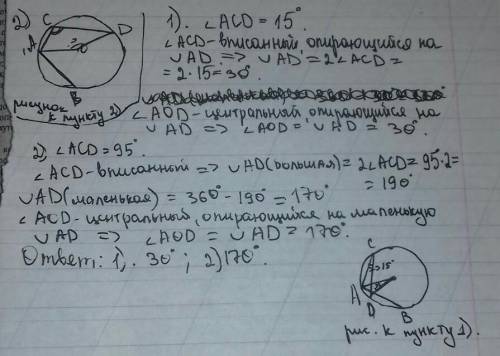 2)
C
D
A
?
O
B
рисунок
к пункту 2)
1). ∠ACD = 15°.
∠ACD-вписанный, опирающийся на
∪AD. => ∪AD = 2∠ACD =
= 2·15 = 30°.
∠AOD-центральный, опирающийся на
∪AD => ∠AOD = ∪AD = 30°.
2) ∠ACD = 95°.
∠ACD-вписанный => ∪AD(большая) = 2∠ACD = 95·2 =
= 190°
∪AD(маленькая) = 360° - 190° = 170°
∠AOD-центральный, опирающийся на маленькую
∪AD => ∠AOD = ∪AD = 170°.
Ответ: 1). 30° ; 2) 170°.
C
15°
A
D
B
рис. к пункту 1).